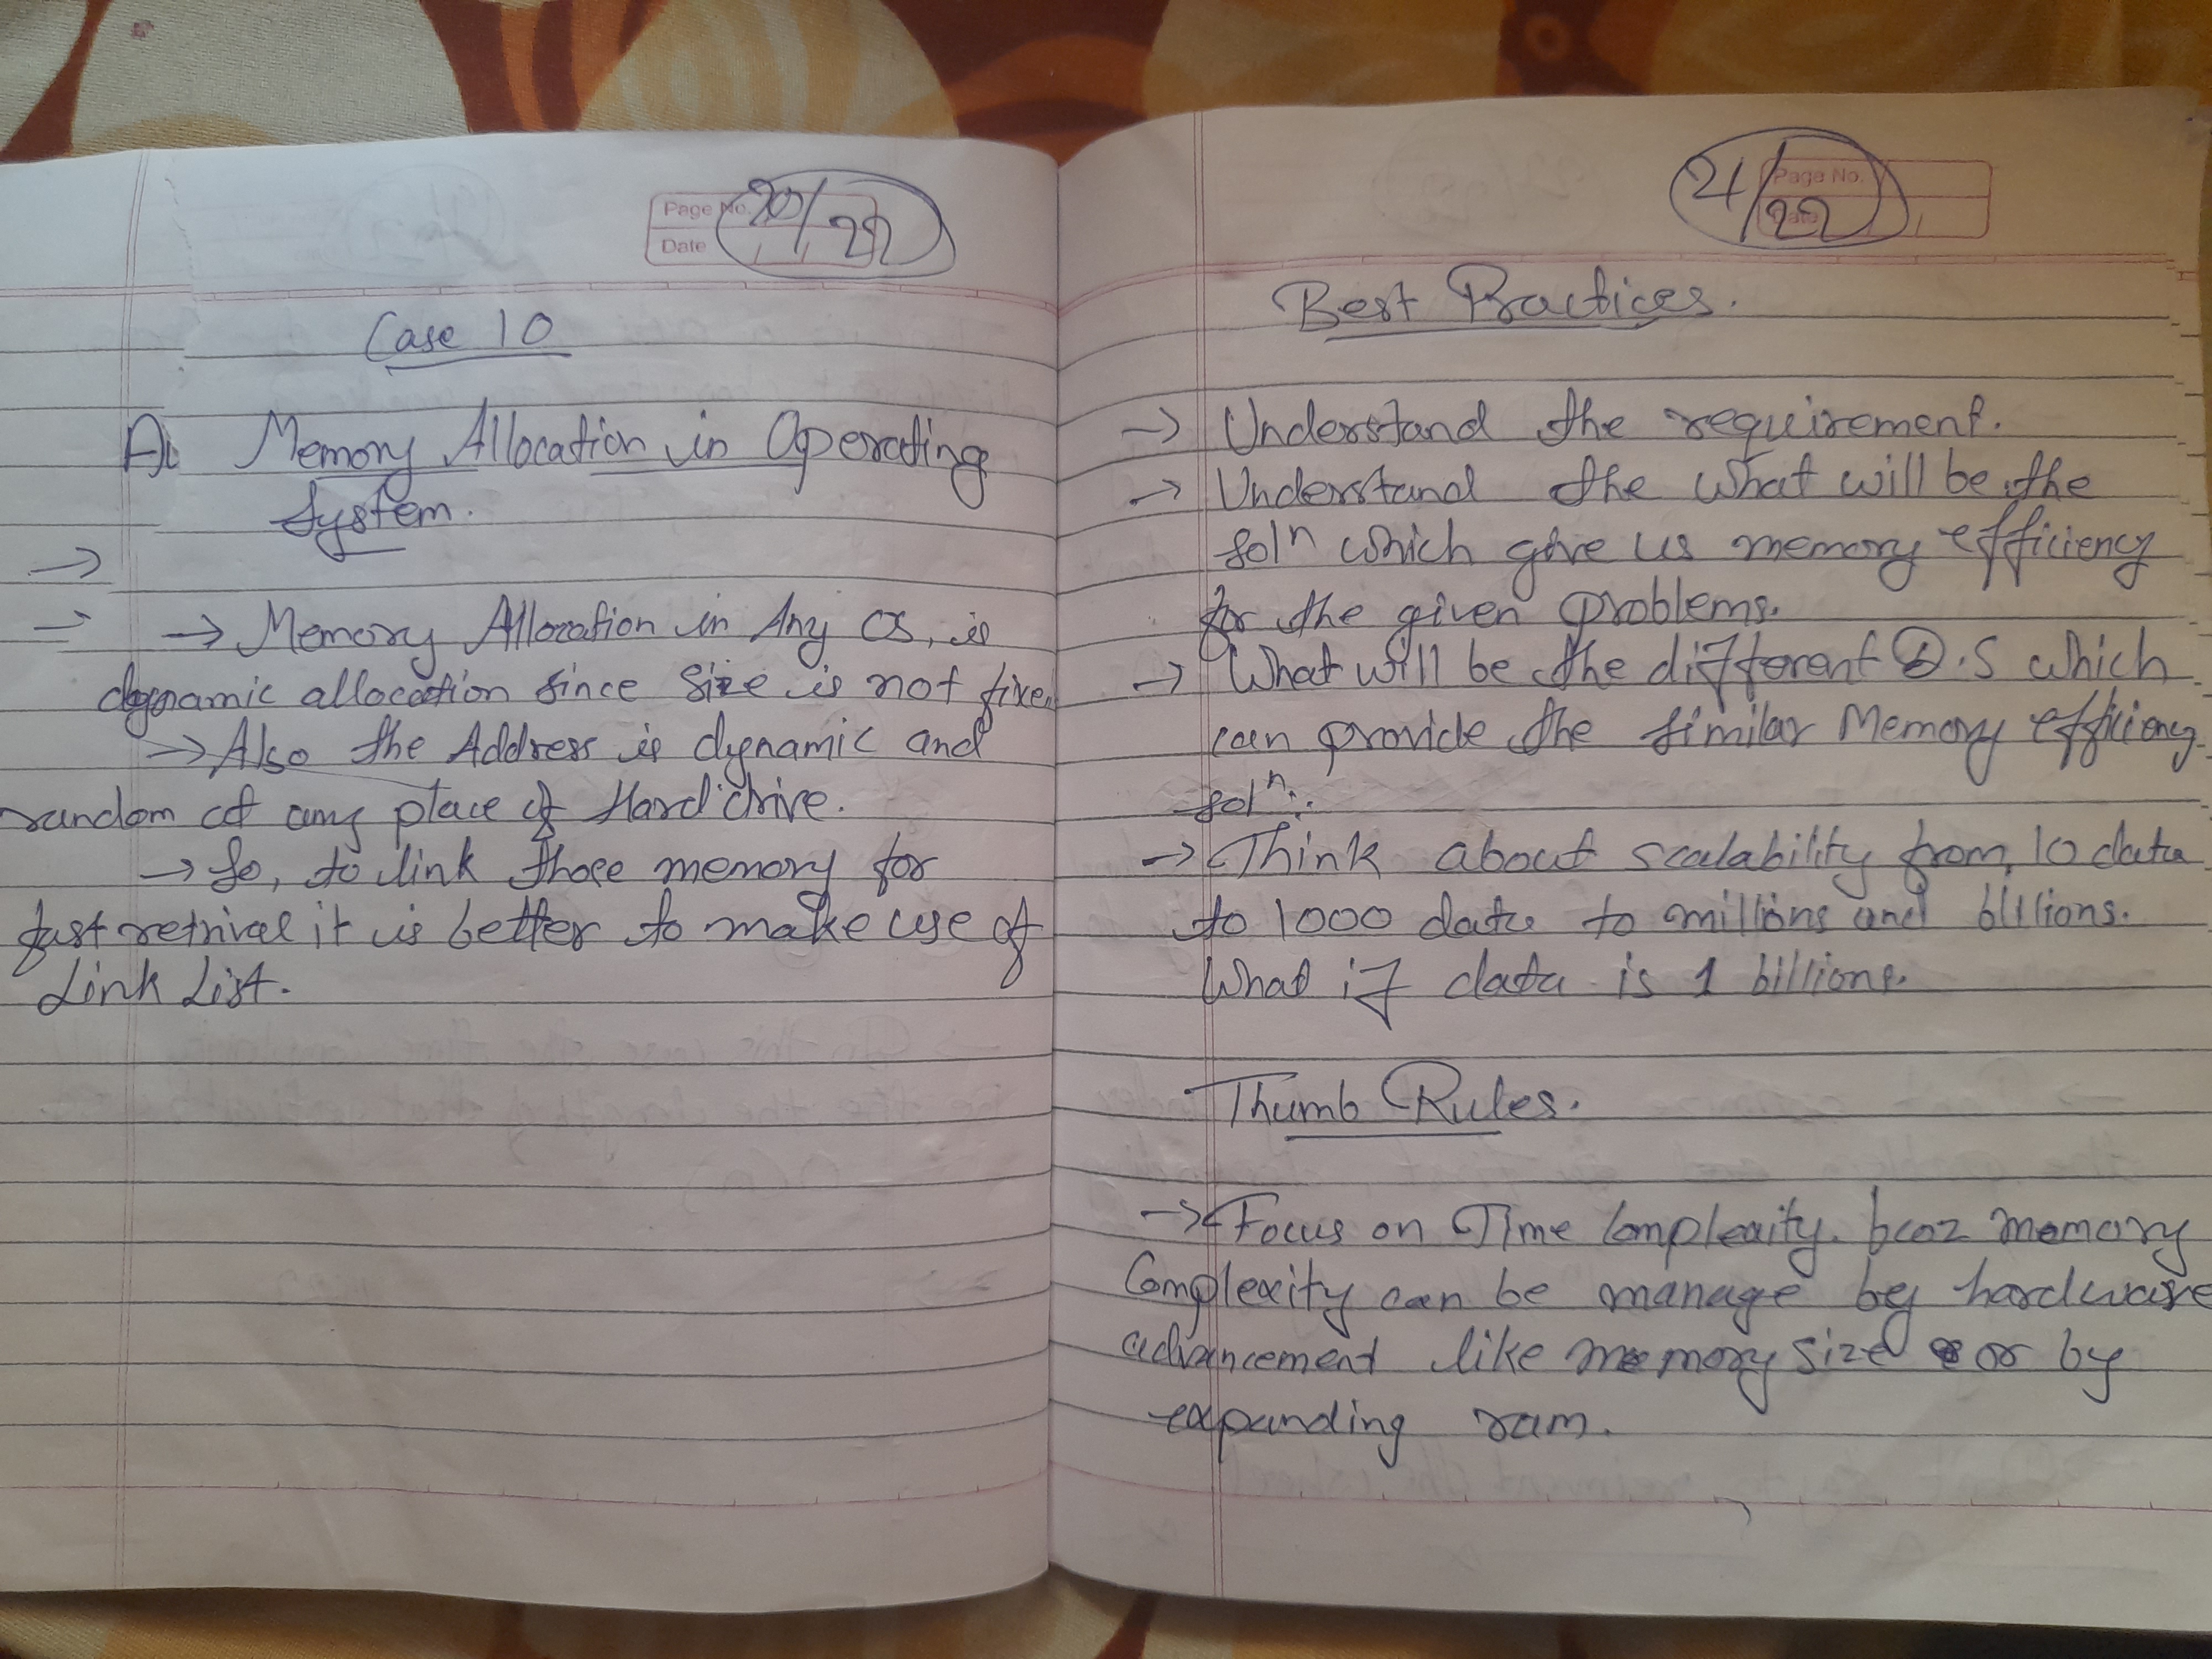 Page No.
Date
20/22
Case 10
A) Memory Allocation in Operating
System.
→
= → Memory Allocation in Any OS, is
dynamic allocation since size is not fixed.
→ Also the Address is dynamic and
random at any place of Hard drive.
→ So, to link those memory for
fast retrival it is better to make use of
Link List.
Page No.
Date
21/22
Best Practices.
→ Understand the requirement.
→ Understand the what will be the
soln which give us memory efficiency
for the given problems.
→ What will be the different D.S which
can provide the similar Memory efficiency
soln:
→ Think about scalability from 10 data
to 1000 data to millions and billions.
What if data is 1 billions.
Thumb Rules.
→ Focus on Time Complexity. bcoz memory
Complexity can be manage by hardware
advancement like memory size or by
expanding ram.